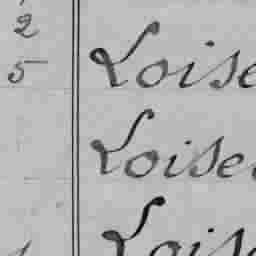 2
5 Loise
Loise
Lois